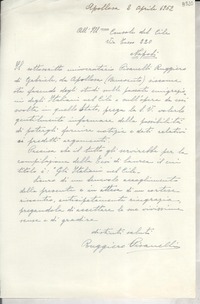 Apollosa 2 Aprile 1952
All' Ill.mo Console del Cile
Via Carso 220
Napoli
Il sottoscritto universitario Pisanelli Ruggiero
di Gabriele, da Apollosa (Benevento), siccome
sta facendo degli studi sulla passata emigrazio-
ne degli Italiani nel Cile e sull'opera da essi
svolta in quella
gentilmente informare della possibilità
di potergli fornire notizie e dati relativi
ai predetti argomenti.
Precisa che il tutto gli servirebbe per la
compilazione della Tesi di laurea il cui
titolo è: "Gli Italiani nel Cile".
Sicuro di un benevolo accoglimento
della presente e in attesa di un cortese
riscontro, anticipatamente ringrazia,
pregandola di accettare la sua vivissima
stima e di gradire
distinti saluti
Ruggiero Pisanelli